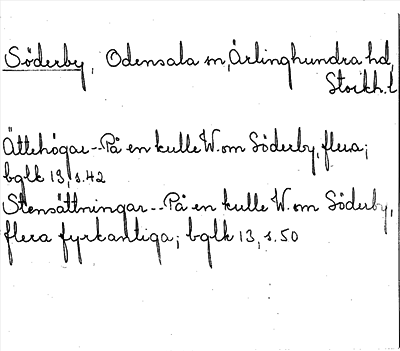 Söderby, Odensala sn, Ärlinghundra hd,
Stockh. l
Ättehögar--På en kulle W. om Söderby, flera;
bglk 13, s. 42
Stensättningar--På en kulle W. om Söderby,
flera fyrkantiga; bglk 13, s. 50